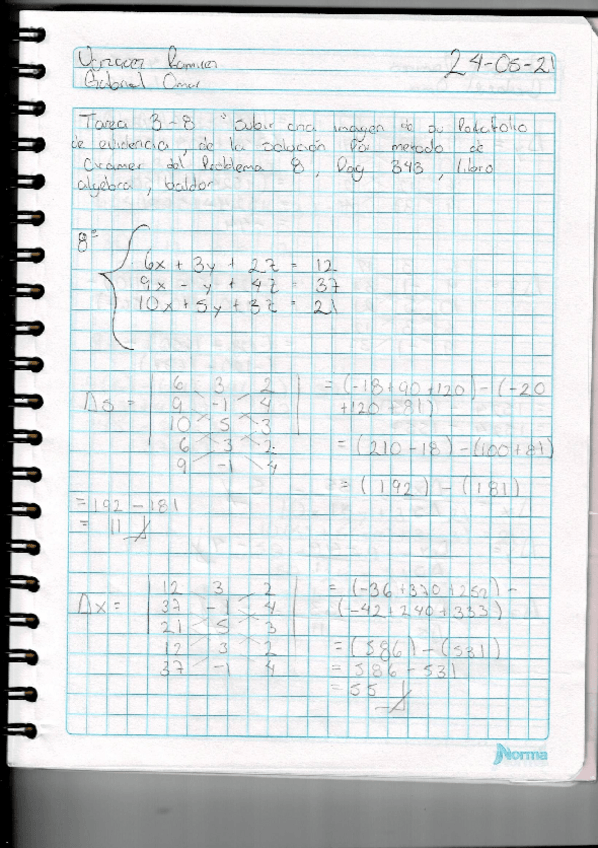 24-05-21
Gabriel Omar
Tarea 3-8 "Subir una imagen de su Portafolio
de evidencia, de la solución por metodo de
Cramer del Problema 8, Pag 343, libro
algebra, baldor
8=
6x + 3y + 2z = 12
9x - y + 4z = 37
10x + 5y + 3z = 21
Δs =
6 3 2
9 -1 4
10 5 3
6 3 2
9 -1 4
= (-18+90+120) - (-20
+120+81)
= (210-18) - (100+81)
= (192) - (181)
= 192 - 181
= 11
Δx =
12 3 2
37 -1 4
21 5 3
12 3 2
37 -1 4
= (-36+370+252) -
(-42+240+333)
= (586) - (531)
= 586 - 531
= 55
Norma